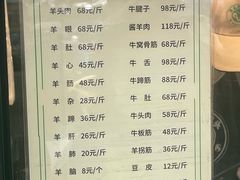 羊头肉 68元/斤 牛腱子 98元/斤
羊眼 68元/斤 酱羊肉 118元/斤
羊肚 68元/斤 牛窝骨筋 68元/斤
羊心 45元/斤 牛舌 98元/斤
羊肠 28元/斤 牛蹄筋 68元/斤
羊杂 28元/斤 牛肚 68元/斤
羊蹄 36元/斤 牛头肉 58元/斤
羊肝 26元/斤 牛板筋 48元/斤
羊肺 20元/斤 羊拐筋 36元/斤
羊脑 8元/个 豆皮 12元/斤